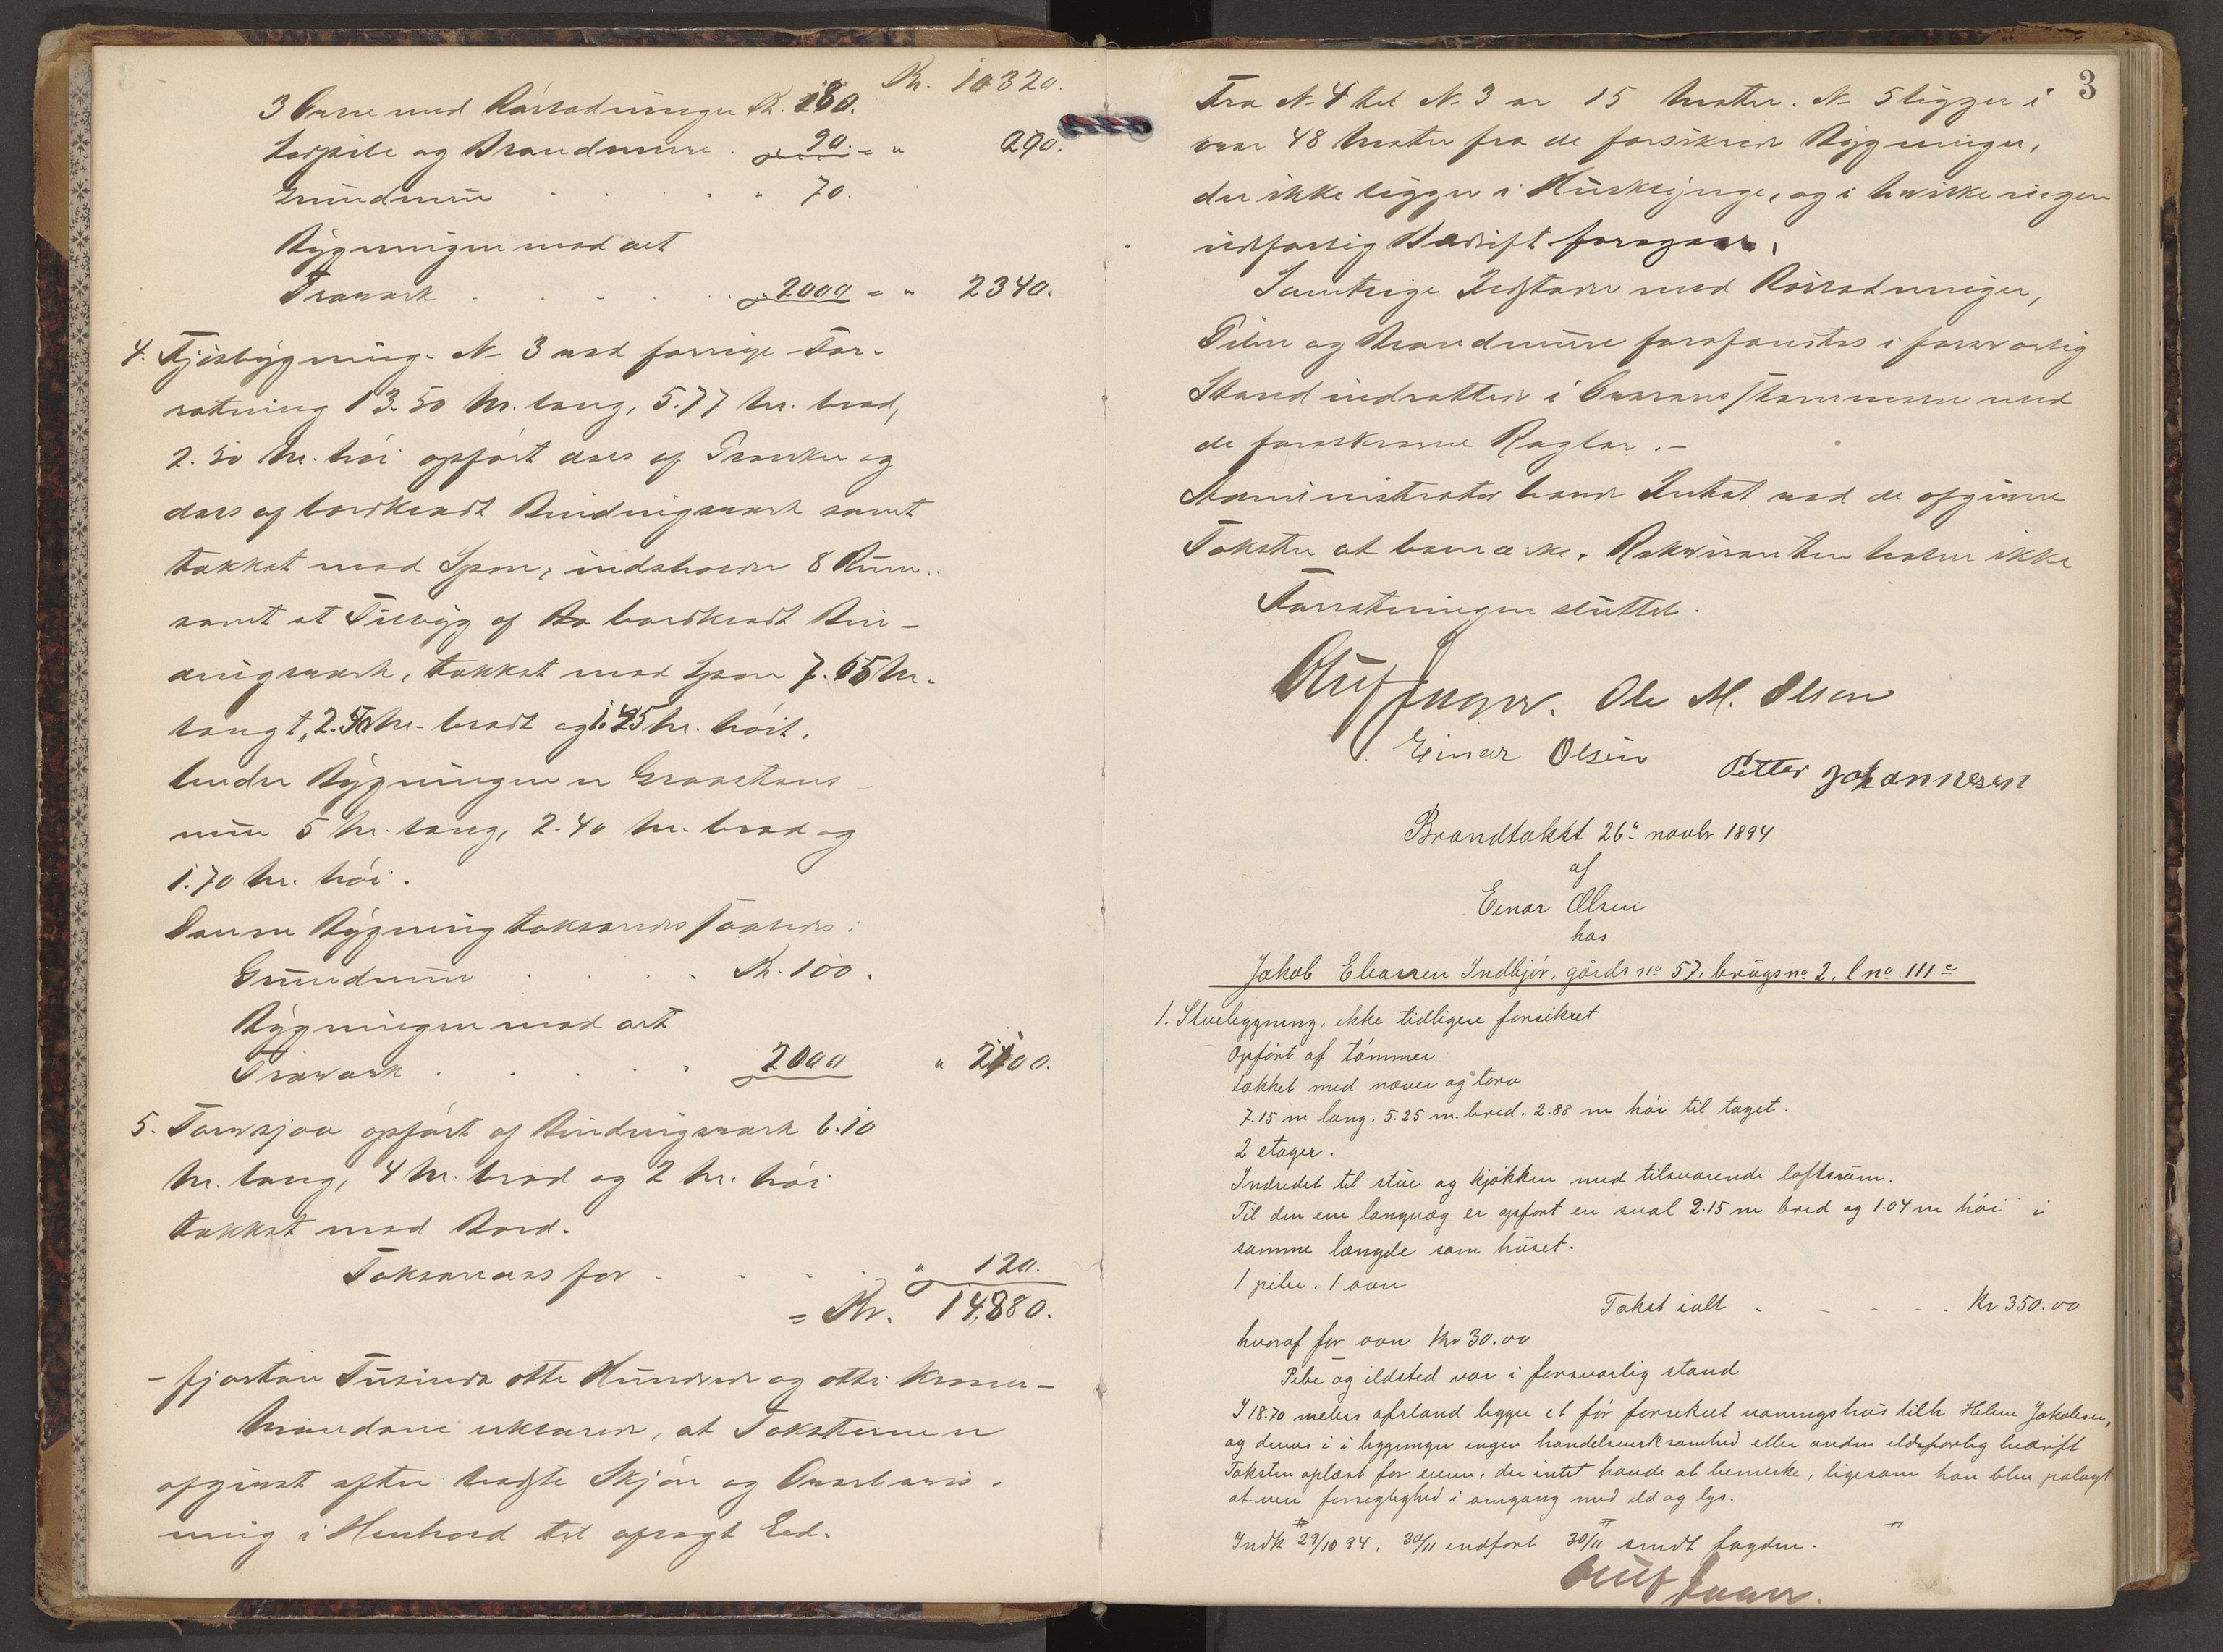 Kr. 10320.
3 Ovne med Rørledninger Kr. 180.
Loipibe og Brandmure . 90. = " 290.
Grundmur . . . . " 70.
Bygningen med alt
Træværk . . . . 2000 = " 2340.
4. Fjøsbygning. No 3 ved forrige For-
retning 13.50 M. lang, 5.77 M. bred,
2.50 M. høi opført dels af Planker og
dels af bordklædt Bindingsværk samt
tækket med Spon, indeholder 8 Rum.
samt et Tilbyg af bordklædt Bin-
dingsværk, tækket med Spon 7.65 M.
langt, 2.50 M. bredt og 1.45 M. høit.
Under Bygningen er Graastens
mur 5 M. lang, 2.40 M. bred og
1.70 M. høi.
Denne Bygning taksertes saaledes:
Grundmur . . . . Kr. 100.
Bygningen med alt
Træværk . . . . 2000 " 2100.
5. Torvsjaa opført af Bindingsværk 6.10
M. lang, 4 M. bred og 2 M. høi
tækket med Bord.
Takseres for - - - . " 120.
= Kr. 14,880.
- fjorten Tusinde otte Hundrede og otti Kroner -
Mændene erklærede, at Taksterne er
afgivet efter bedste Skjøn og Overbevis-
ning i Henhold til aflagt Ed.
3
Fra No 4 til No 3 er 15 Meter. No 5 ligger i
over 48 Meter fra de forsikrede Bygninger,
der ikke ligger i Husklynge, og i hvilke ingen
ildsfarlig Bedrift foregaar.
Samtlige Ildsteder med Rørledninger,
Piber og Brandmure forefandtes i forsvarlig
Stand indrettede i Overensstemmelse med
de foreskrevne Regler. -
Administrator havde Intet ved de afgivne
Takster at bemærke. Rekvirenten heller ikke
Forretningen sluttet.
Ole M. Olsen
Einar Olsen Petter Johannesen
Brandtakst 26de novbr 1894
af
Einar Olsen
hos
Jakob Eliassen Indbjør, gårds no 57, brugs no 2, l no 111c
1. Stuebygning, ikke tidligere forsikret
Opført af tømmer
tækket med næver og torv
7.15 m lang. 5.25 m. bred. 2.88 m høi til taget.
2 etager.
Indredet til stue og kjøkken med tilsvarende loftsrum.
Til den ene langvæg er opført en sval 2.15 m bred og 1.04 m høi i
samme længde som huset.
1 pibe. 1 ovn
Takst ialt - - - - . Kr 350.00
hvoraf for ovn Kr 30.00
Pibe og ildsted var i forsvarlig stand
I 18.70 meters afstand ligger et før forsikret vaaningshus tilh Helene Jakobsen,
og drives i bygninger ingen handelsvirksomhed eller anden ildsfarlig bedrift
Taksten oplæst for eieren, der intet havde at bemerke, ligesom han blev pålagt
at vise forsigtighed i omgang med ild og lys.
Indk 29/10 94, 30/11 indført 30/11 sendt fogden.